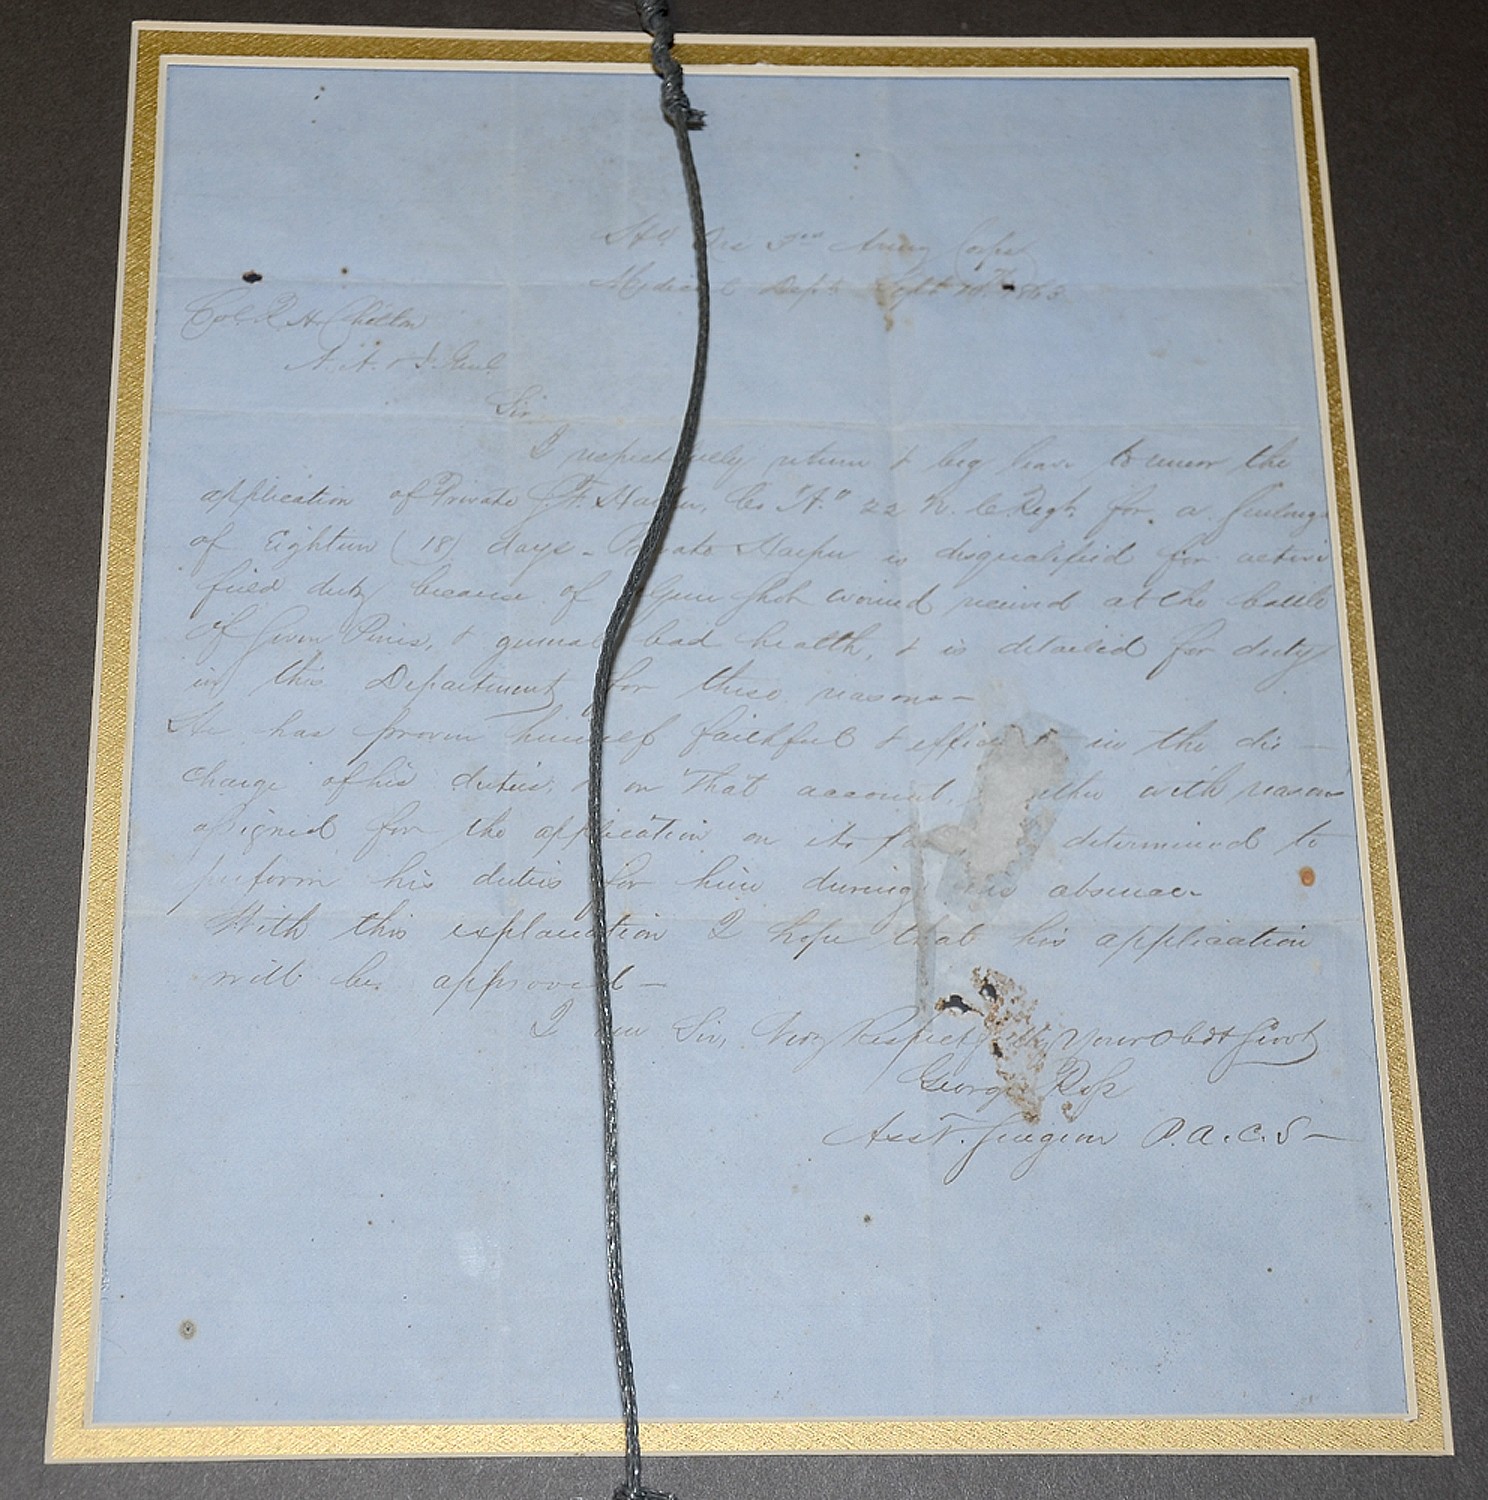 Hd Qrs 3rd Army Corps
Medical Dept. Sept 1863
Col. R H Chilton
A. A. & I. Genl
Sir
I respectfully return & beg leave to the
application of Private J. F. Harper, Co "A." 22 N. C. Regt. for a furlough
of Eighteen (18) days - Private Harper is disqualified for active
field duty because of Gun Shot wound received at the battle
of Seven Pines, & general bad health, & is detailed for duty
in this Department for these reasons -
He has proven himself faithful & efficient in the dis -
charge of his duties, & on that account, with reasons
assigned for the application on its determined to
perform his duties for him during his absence
With this explanation I hope that his application
will be approved -
I am Sir, Very Respectfully Your Obdt Servt
George Ross
Asst. Surgeon P. A. C. S -